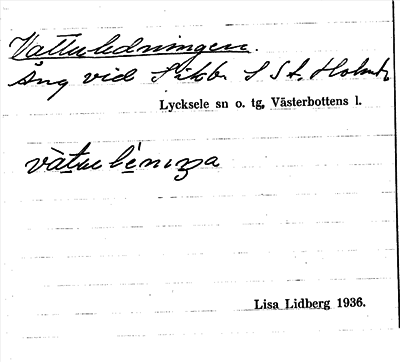 Vattuledningen.
Äng vid Sikb. S St. Holmtr.
Lycksele sn o. tg, Västerbottens l.
vàtuléniŋa
Lisa Lidberg 1936.